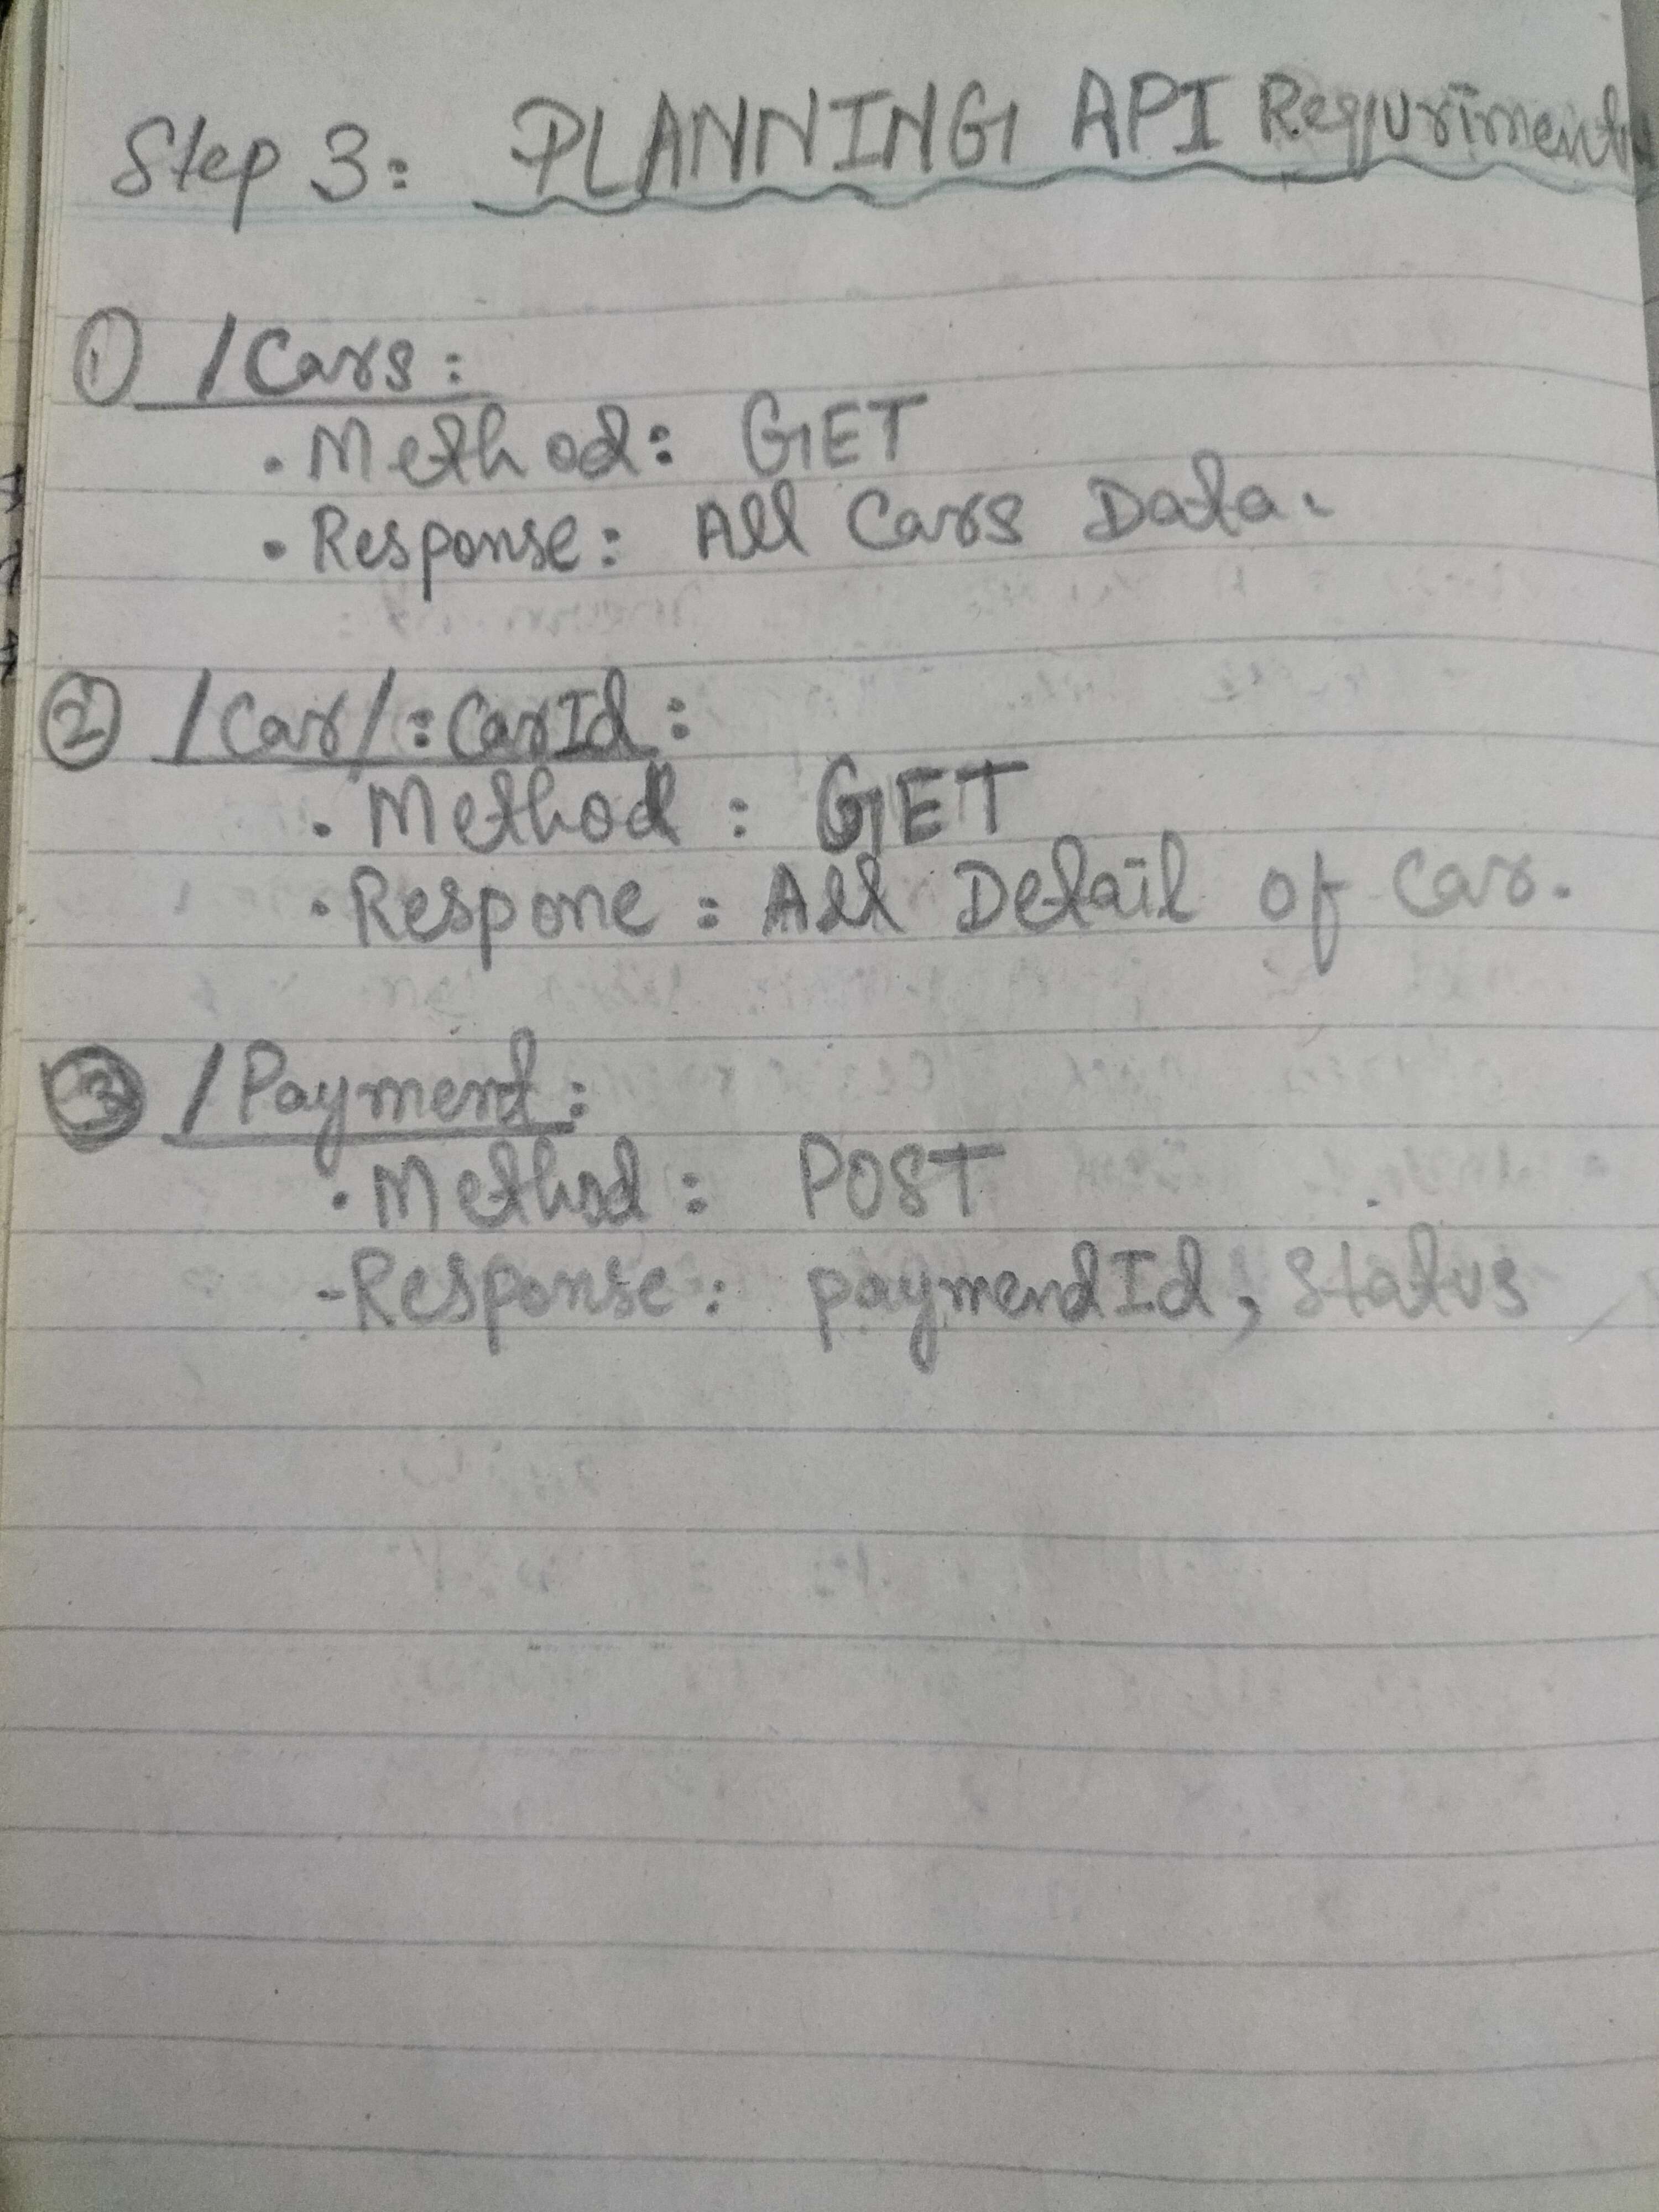 Step 3: PLANNING API Requriment
① /Cars:
• Method: GET
• Response: All Cars Data.
② /Car/:CarId:
• Method: GET
• Respone: All Detail of Car.
③ /Payment:
• Method: POST
- Response: paymendId, Status